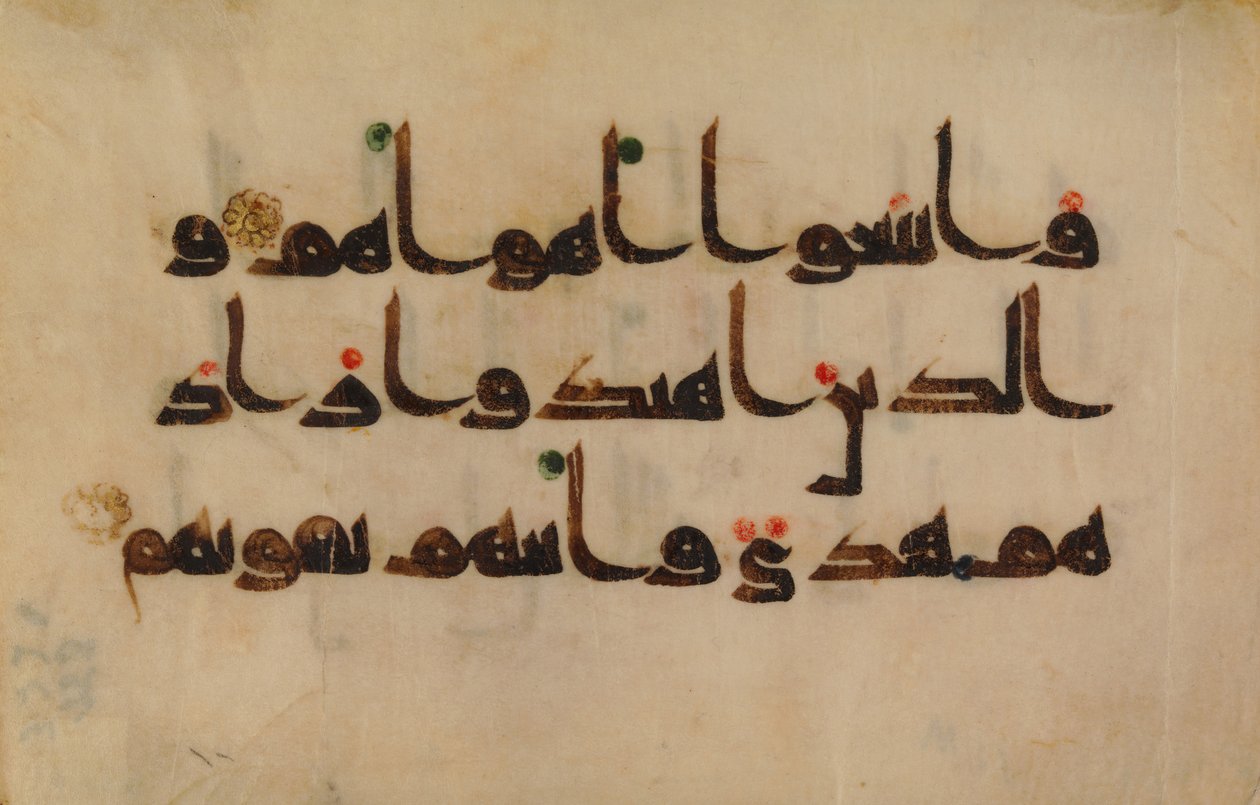 واتبعوا اهواهم و
الذين اهتدوا زاد
هم هدى واتيهم تقويهم